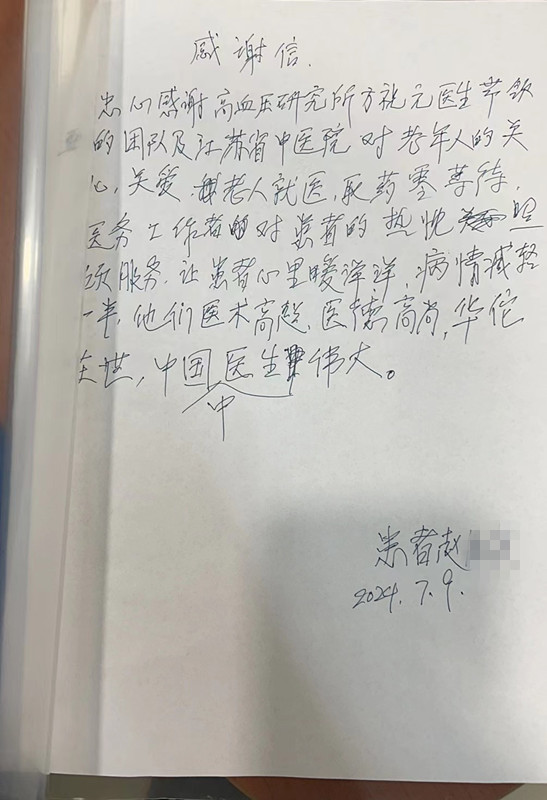 感谢信.
忠心感谢高血压研究所方祝元医生带领
的团队及江苏省中医院对老年人的关
心,关爱老人就医,取药零等待,
医务工作者的对患者的热忱
服务.让患者心里暖洋洋,病情减轻
一半,他们医术高超,医德高尚,华佗
在世,中国中医生伟大。
患者赵
2024.7.9.